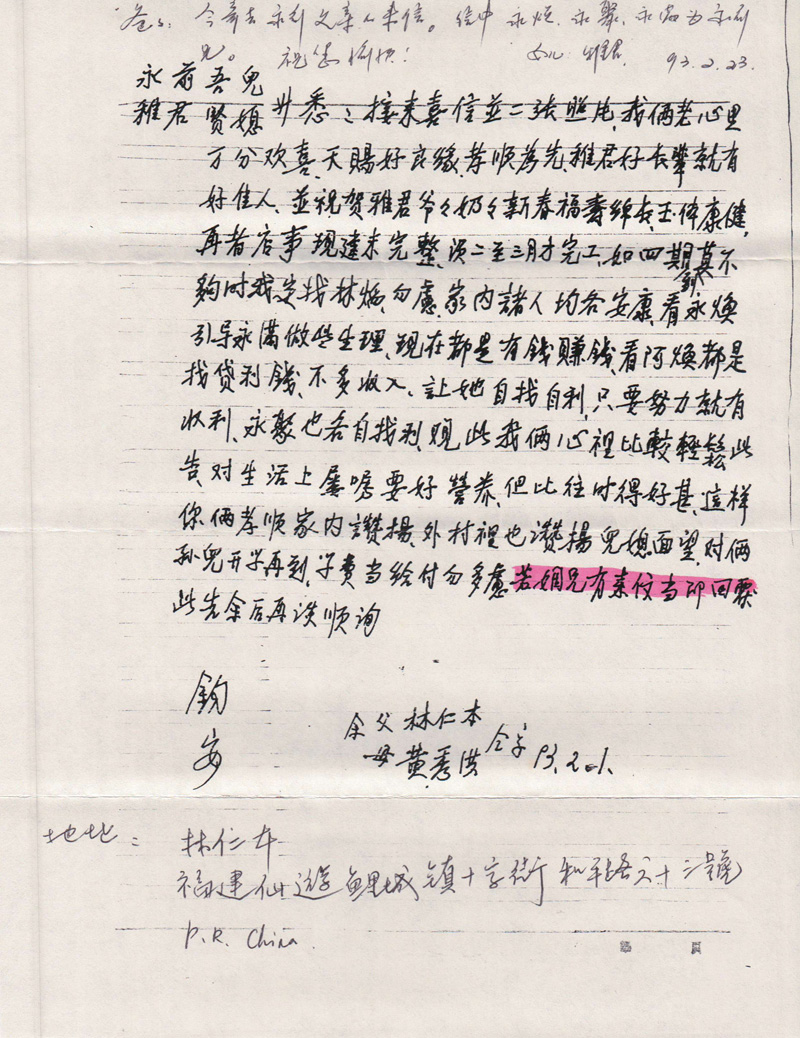 爸: 今寄去永前父亲之来信。信中永煥、永聚、永滿为永前
兄。 祝您愉快! 女儿 雅君 93.2.23.
永前吾兒
雅君賢媳 廾悉: 接来喜信並二张照片,我俩老心里
万分欢喜,天賜好良緣,孝順為先,雅君好長輩就有
好佳人,並祝贺雅君爷々奶々新春福壽綿長,玉体康健,
再者店事現建未完整,须二至三月才完工,如四期錢真不
夠时我定找林煥,勿慮,家内諸人均各安康,看永煥
引导永滿做些生理,现在都是有錢賺錢,看阿煥都是
找贷利錢,不多收入,让她自找自利,只要努力就有
收利,永聚也各自找利,观此我俩心裡比較輕鬆,此
告,对生活上屡嘱要好營养,但比往时得好甚,這样
你俩孝順家内讚揚,外村裡也讚揚,兒媳面望,对俩
孙兒开学再到,学费当给付勿多慮,若姻兄有来信当即回票
此先余后再谈顺询
鈞
安
余父林仁本
母黄秀洪 仝字 93.2.1.
地址: 林仁本
福建仙遊鲤城镇十字街和平路六十三號
P.R. China.
第 頁